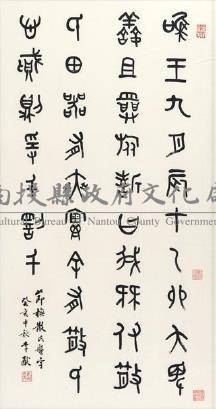 唯王九月辰才乙卯夨卑
鮮且旅誓曰我既付散
氏田器有爽實余有散氏
心賊則爰千罰千
節臨散氏盤字
癸亥中秋李猷
投縣政府文化
Cultural Bureau of Nantou County Government